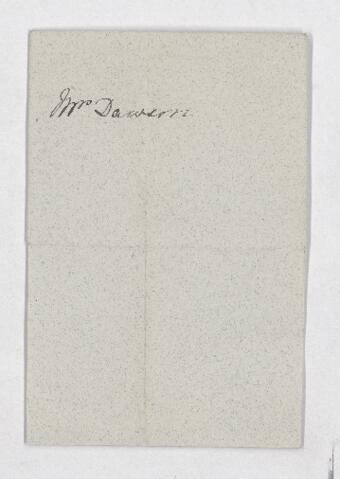 Mrs Dawson